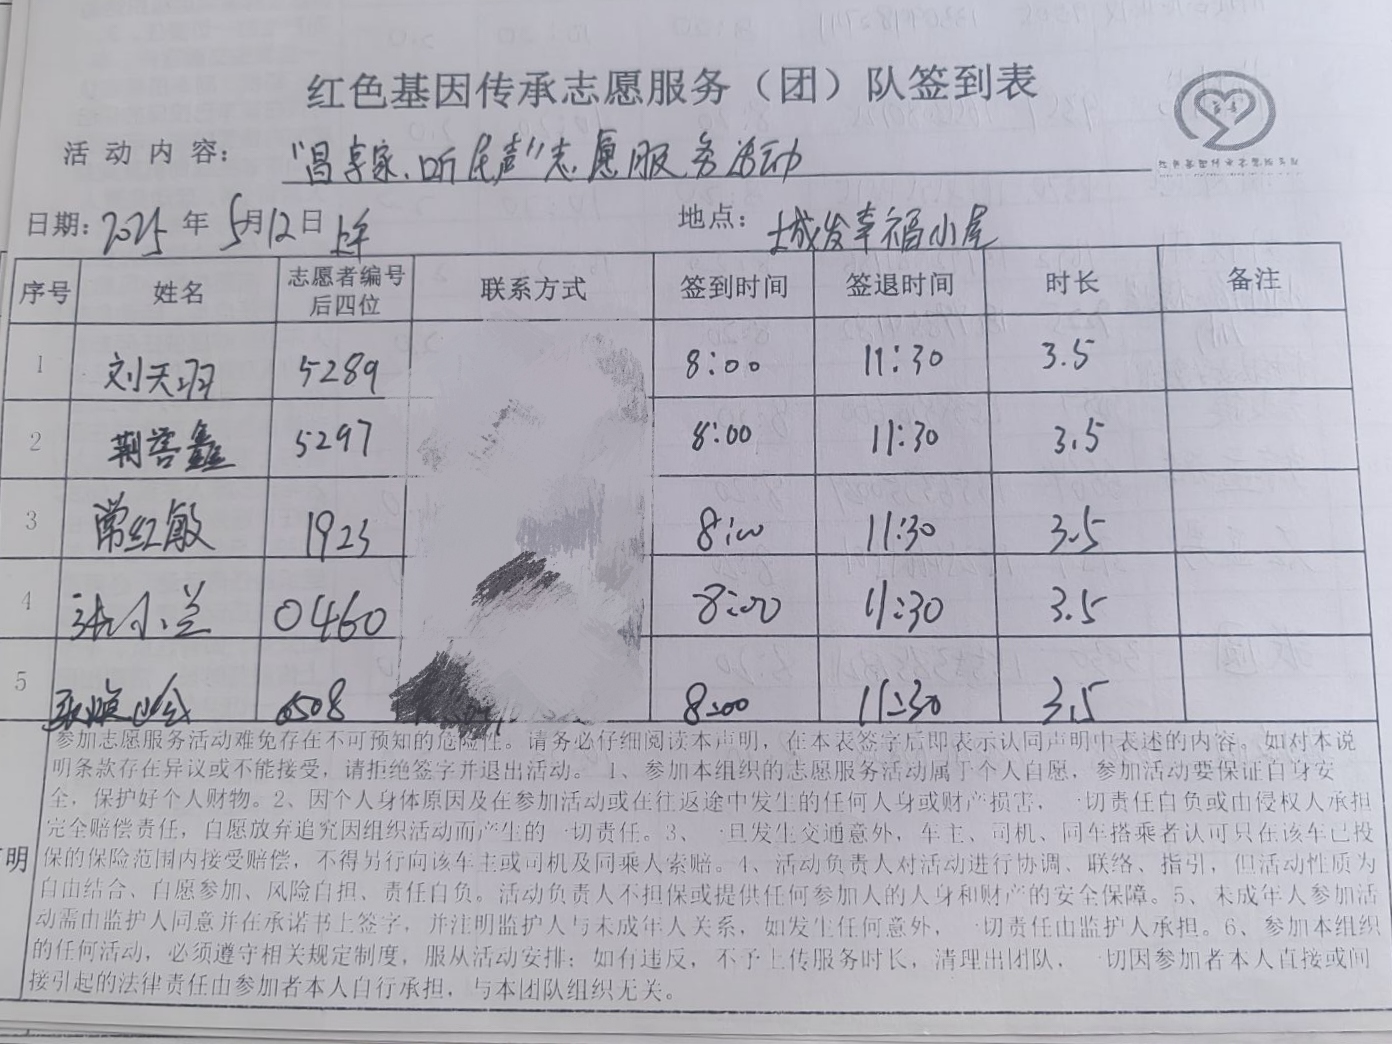 红色基因传承志愿服务（团）队签到表
活动内容：“昌享家、听民声”志愿服务活动
日期：2025年5月12日上午 地点：城发幸福小屋
序号 姓名 志愿者编号后四位 联系方式 签到时间 签退时间 时长 备注
1 刘天羽 5289 8:00 11:30 3.5
2 荆善鑫 5297 8:00 11:30 3.5
3 常红敏 1923 8:00 11:30 3.5
4 张小兰 0460 8:00 11:30 3.5
5 0508 8:00 11:30 3.5
参加志愿服务活动难免存在不可预知的危险性。请务必仔细阅读本声明，在本表签字后即表示认同声明中表述的内容。如对本说
明条款存在异议或不能接受，请拒绝签字并退出活动。1、参加本组织的志愿服务活动属于个人自愿，参加活动要保证自身安
全，保护好个人财物。2、因个人身体原因及在参加活动或在往返途中发生的任何人身或财产损害，一切责任自负或由侵权人承担
完全赔偿责任，自愿放弃追究因组织活动而产生的一切责任。3、一旦发生交通意外，车主、司机、同车搭乘者认可只在该车已投
明 保的保险范围内接受赔偿，不得另行向该车主或司机及同乘人索赔。4、活动负责人对活动进行协调、联络、指引，但活动性质为
自由结合、自愿参加、风险自担、责任自负。活动负责人不担保或提供任何参加人的人身和财产的安全保障。5、未成年人参加活
动需由监护人同意并在承诺书上签字，并注明监护人与未成年人关系，如发生任何意外，一切责任由监护人承担。6、参加本组织
的任何活动，必须遵守相关规定制度，服从活动安排；如有违反，不予上传服务时长，清理出团队，一切因参加者本人直接或间
接引起的法律责任由参加者本人自行承担，与本团队组织无关。